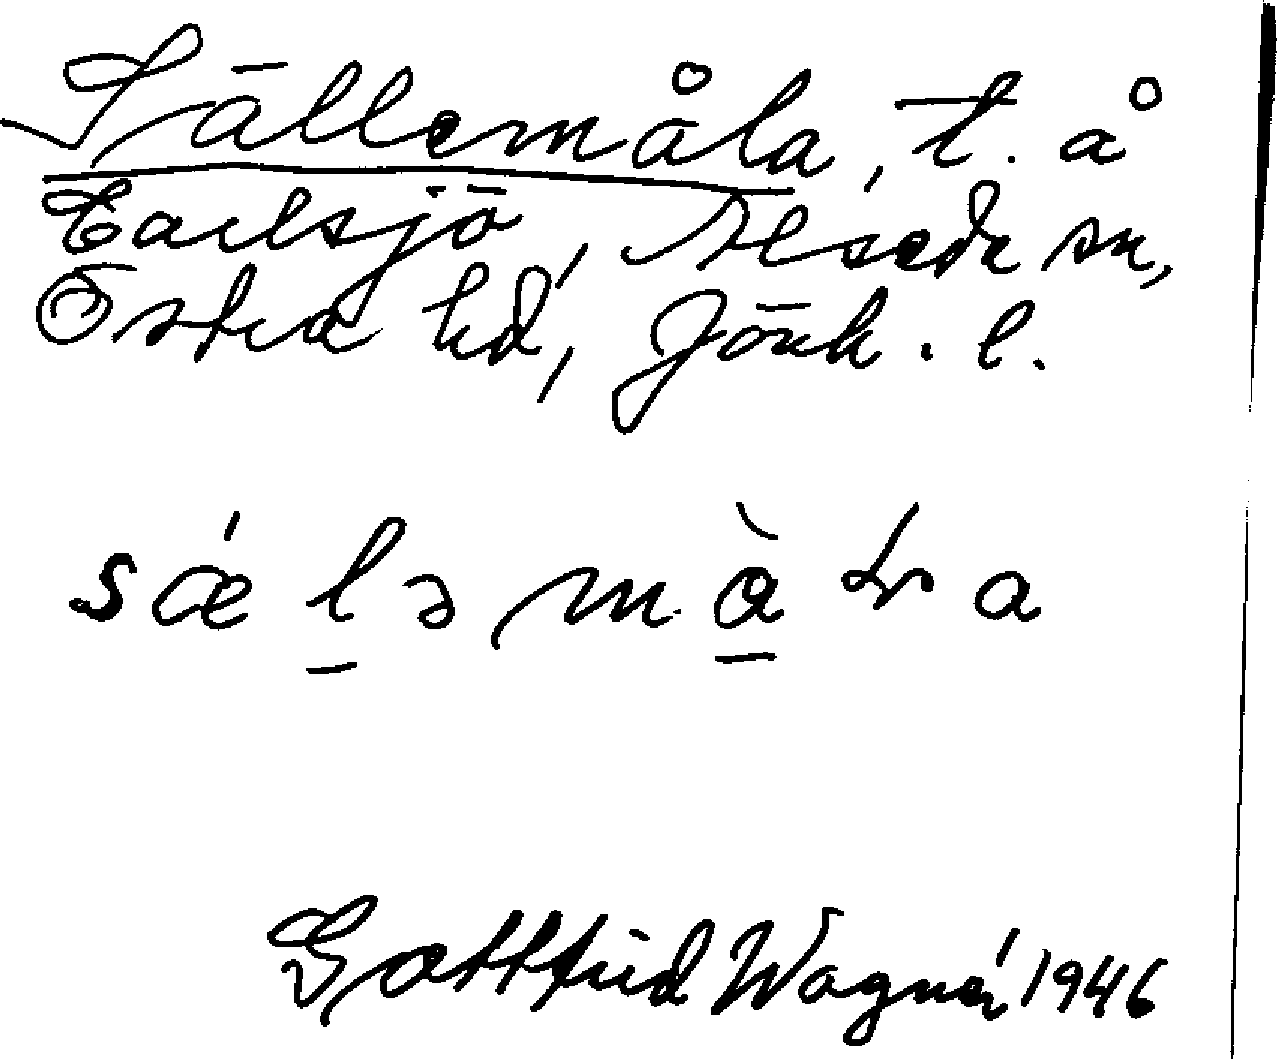 Sällemåla, t. å
Karlsjö, Alseda sn,
Östra hd, Jönk. l.
sǽl̠əmà̠ɽa
Gottfrid Wagnér 1946